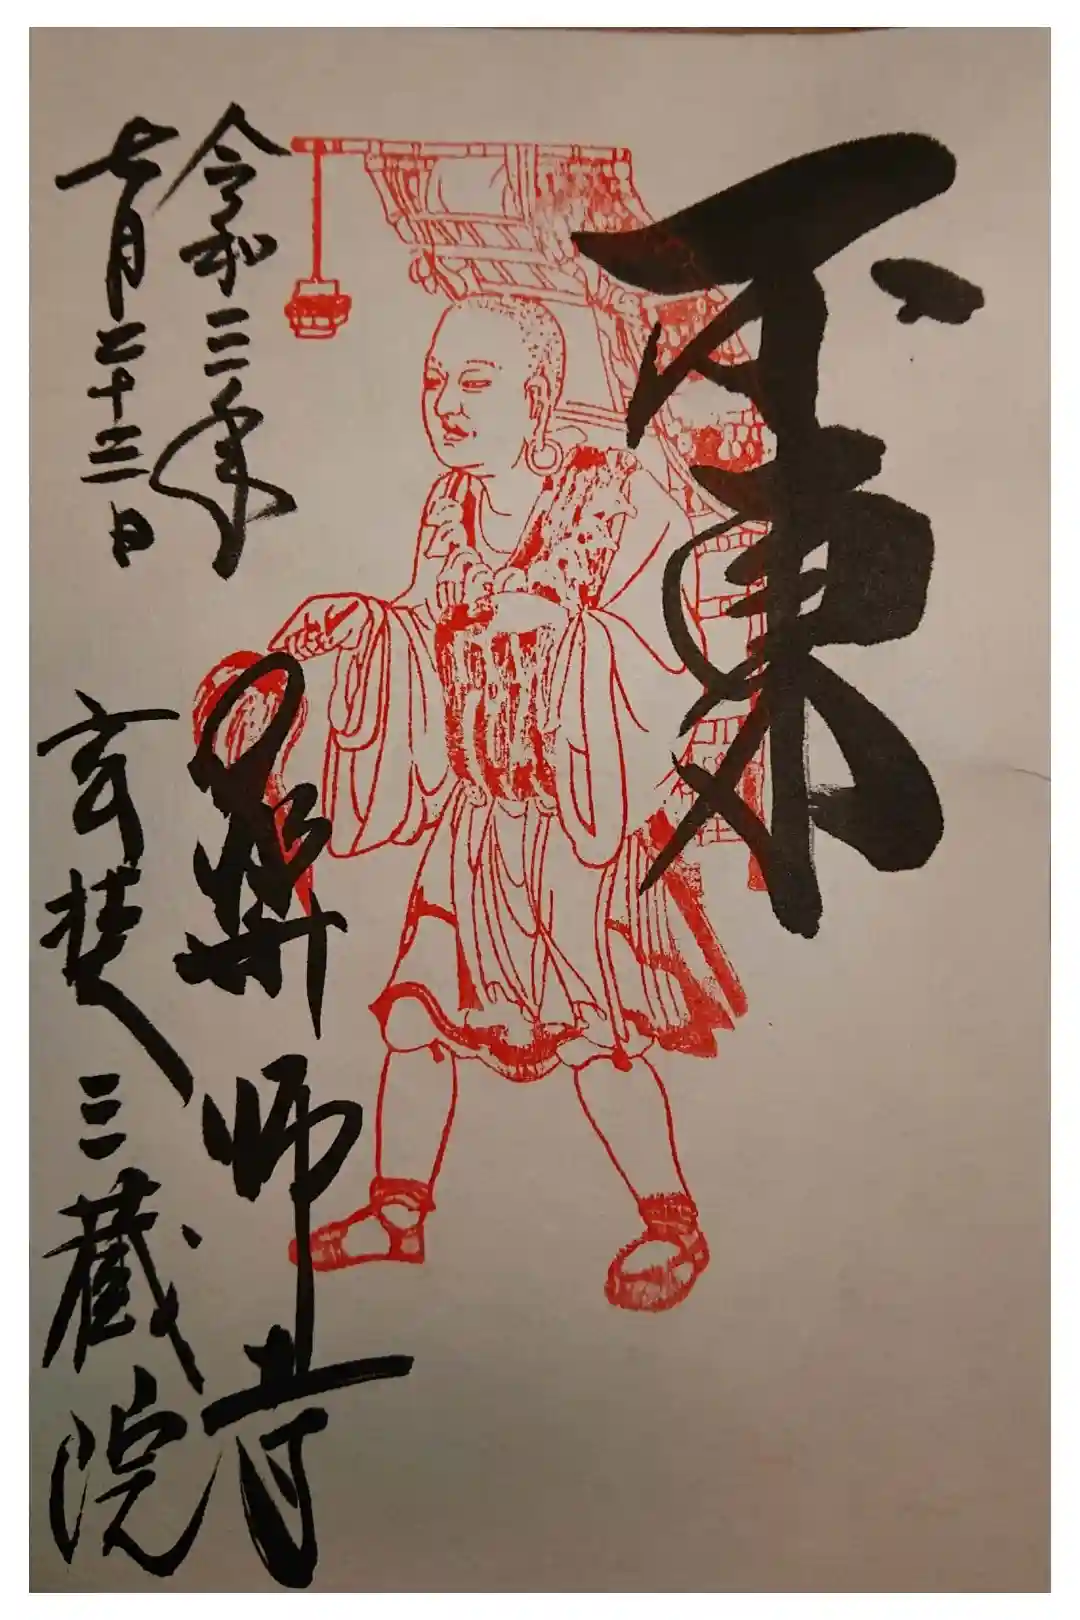 不東
令和二年
七月二十三日
薬師寺
玄奘三蔵院